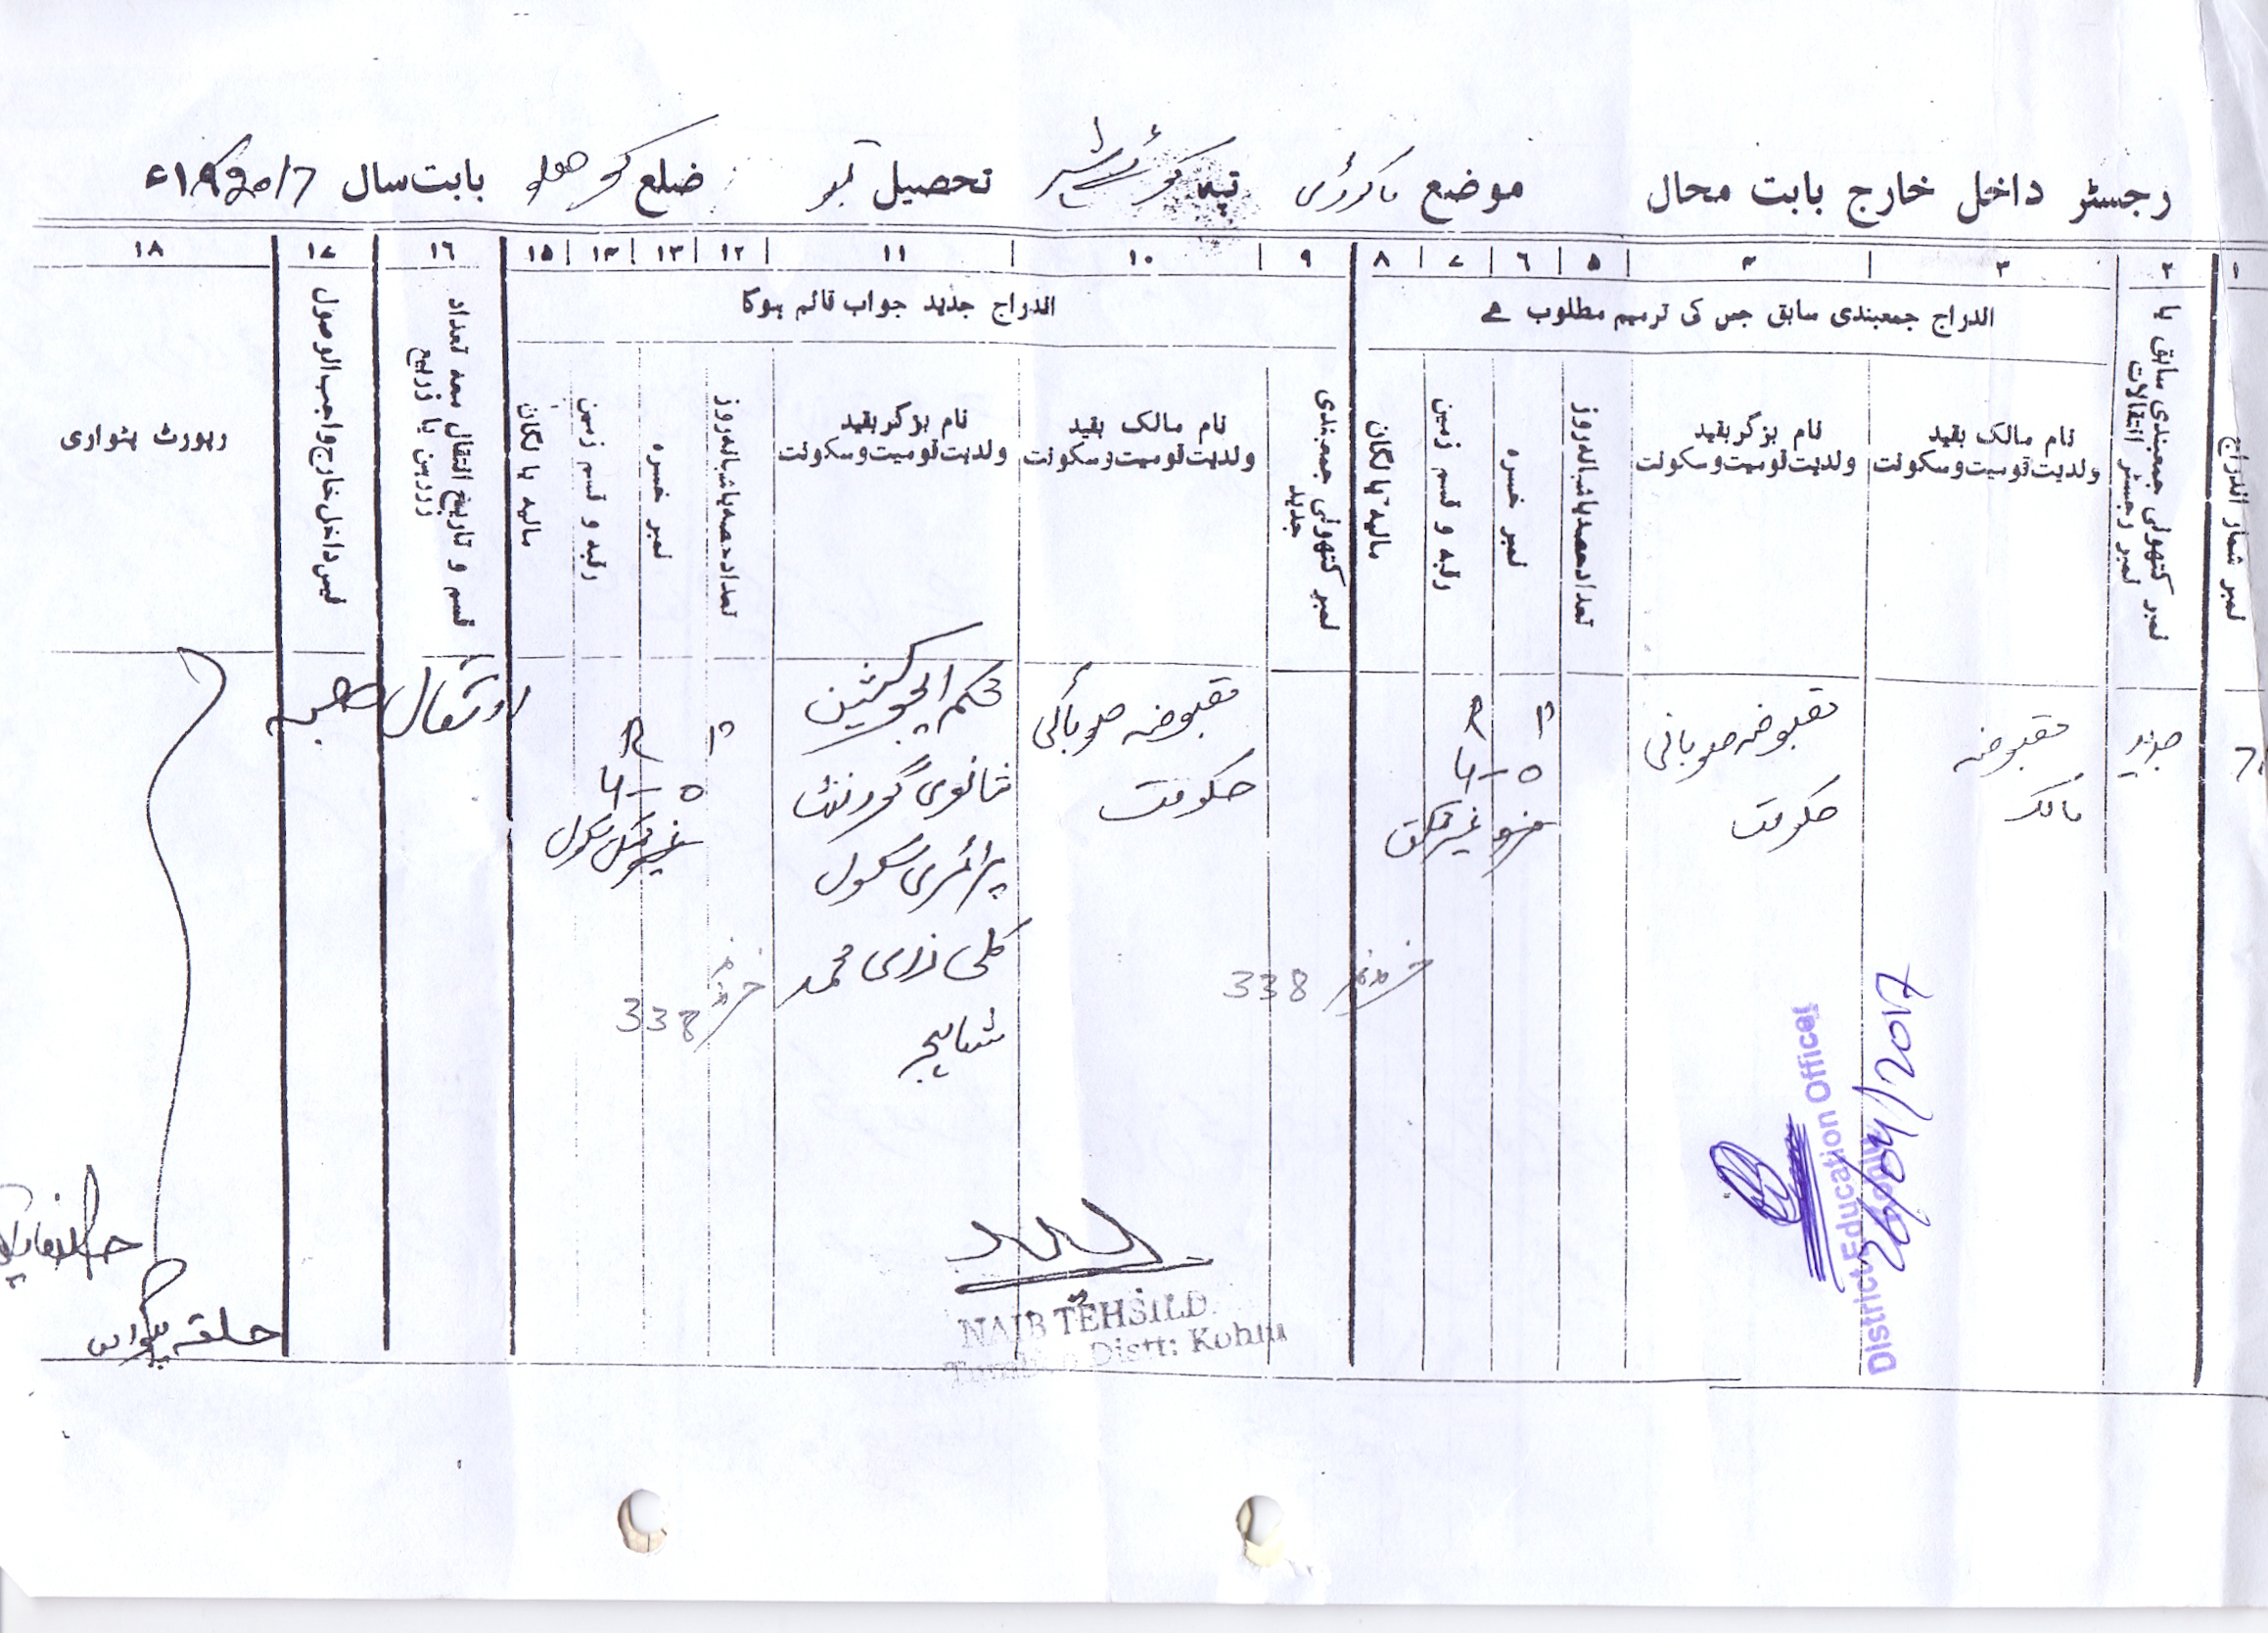 رجسٹر داخل خارج بابت محال موضع تپہ تحصیل ضلع کوہلو بابت سال ۱۹ء 2017
۱ ۲ ۳ ۴ ۵ ۶ ۷ ۸ ۹ ۱۰ ۱۱ ۱۲ ۱۳ ۱۴ ۱۵ ۱۶ ۱۷ ۱۸
اندراج جمعبندی سابق جس کی ترمیم مطلوب ہے
اندراج جدید جواب قائم ہوگا
نمبر شمار اندراج
نمبر کتھونی جمعبندی سابق یا
نمبر رجسٹر انتقالات
نام مالک بقید
ولدیت قومیت و سکونت
نام بزگر بقید
ولدیت قومیت و سکونت
تعداد حصہ یا شبانہ روز
نمبر خسرہ
رقبہ و قسم زمین
مالیہ یا لگان
نمبر کتھونی جمعبندی
جدید
نام مالک بقید
ولدیت قومیت و سکونت
نام بزگر بقید
ولدیت قومیت و سکونت
تعداد حصہ یا شبانہ روز
نمبر خسرہ
رقبہ و قسم زمین
مالیہ یا لگان
قسم و تاریخ انتقال معہ تعداد
زر رہن یا زر بیع
فیس داخل خارج واجب الوصول
رپورٹ پٹواری
جدید
مقبوضہ
مالک
مقبوضہ صوبائی
حکومت
خسرہ نمبر 338
مقبوضہ صوبائی
حکومت
محکمہ ایجوکیشن
ثانوی گورنمنٹ
پرائمری سکول
کلی محمد
خسرہ نمبر 338
انتقال ھبہ
حلقہ پٹواری
NAIB TEHSILD
Distt: Kohlu
District Education Officer
26/04/2017